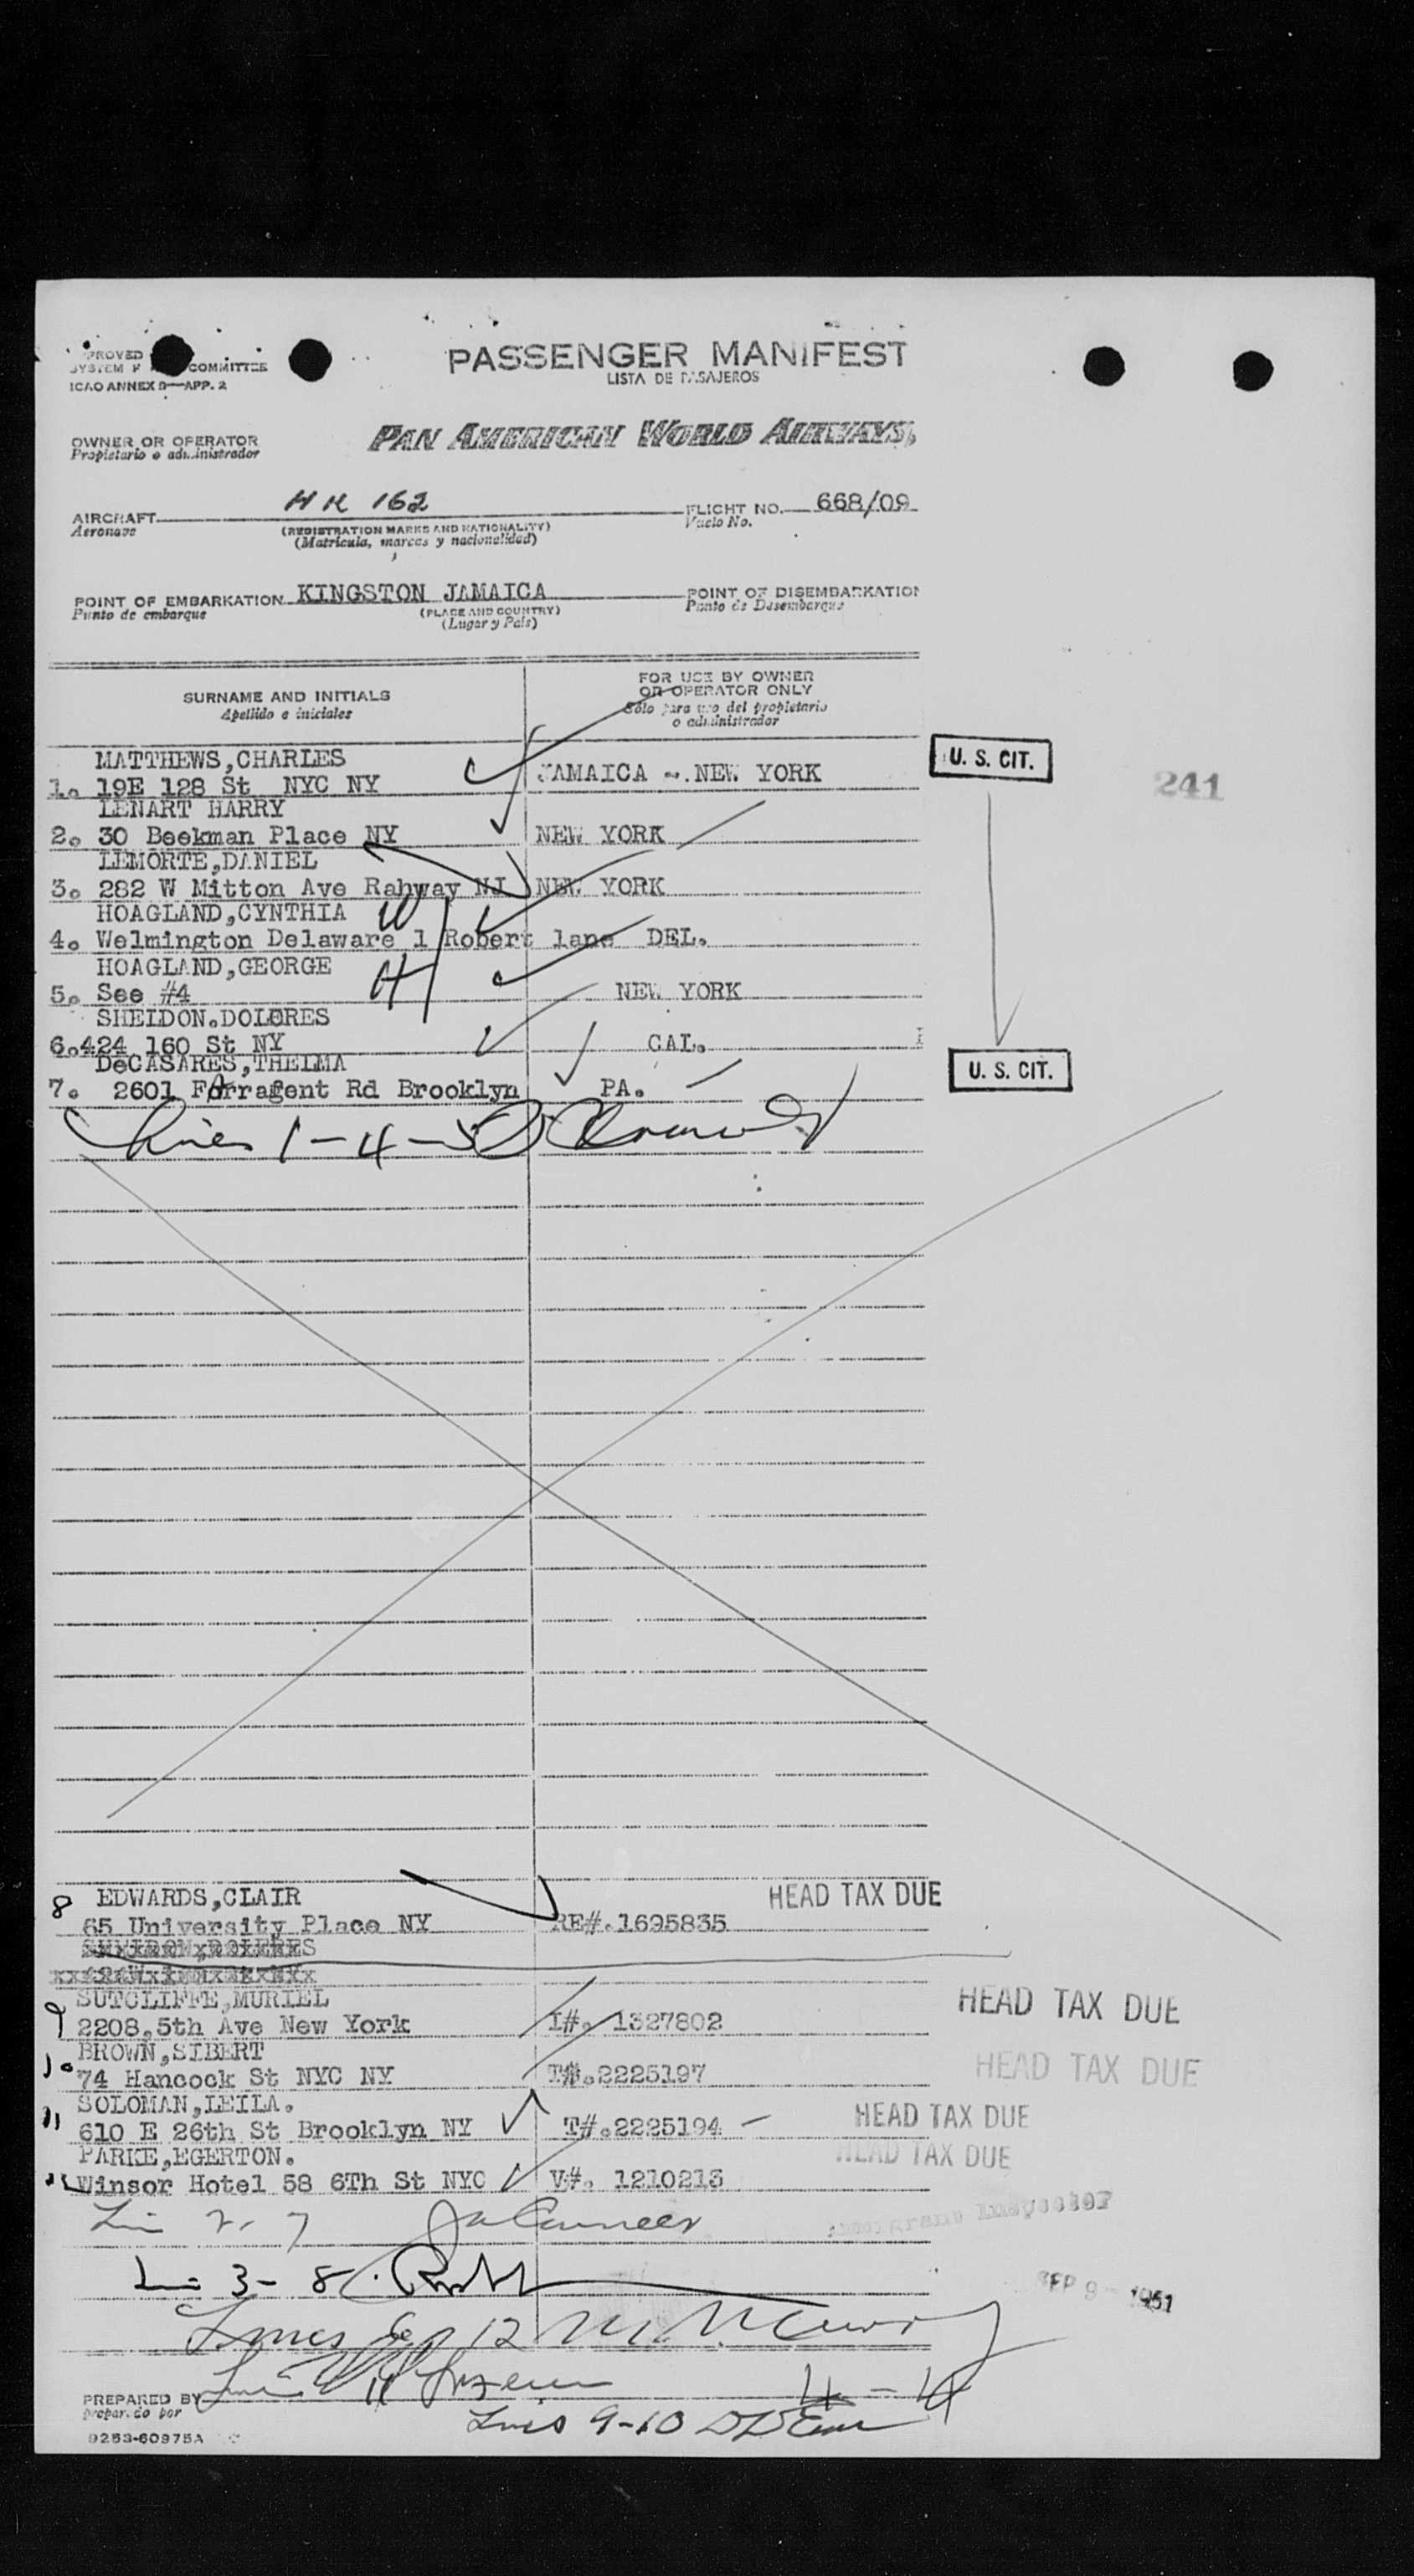 PASSENGER MANIFEST
LISTA DE PASAJEROS
PROVED COMMITTEE
SYSTEM
ICAO ANNEX 9—APP. 2
OWNER OR OPERATOR
Propietario o administrador
PAN AMERICAN WORLD AIRWAYS,
AIRCRAFT HK 162 FLIGHT NO. 668/09
Aeronave (REGISTRATION MARKS AND NATIONALITY) Vuelo No.
(Matricula, marcas y nacionalidad)
POINT OF EMBARKATION KINGSTON JAMAICA POINT OF DISEMBARKATION
Punto de embarque (PLACE AND COUNTRY) Punto de Desembarque
(Lugar y Pais)
SURNAME AND INITIALS
Apellido e iniciales
FOR USE BY OWNER
OR OPERATOR ONLY
Sólo para uso del propietario
o administrador
MATTHEWS,CHARLES U. S. CIT.
1. 19E 128 St NYC NY JAMAICA - NEW YORK 241
LENART HARRY
2. 30 Beekman Place NY NEW YORK
LEMORTE,DANIEL
3. 282 W Mitton Ave Rahway NJ NEW YORK
HOAGLAND,CYNTHIA W
4. Welmington Delaware 1 Robert lane DEL.
HOAGLAND,GEORGE H
5. See #4 NEW YORK
SHELDON.DOLORES
6.424 160 St NY CAL.
DeCASARES,THELMA U. S. CIT.
7. 2601 Farragent Rd Brooklyn PA.
Lines 1-4-5
8 EDWARDS,CLAIR HEAD TAX DUE
65 University Place NY RE#.1695835
SUTCLIFFE,MURIEL HEAD TAX DUE
9 2208,5th Ave New York I#. 1327802
BROWN,SIBERT HEAD TAX DUE
10 74 Hancock St NYC NY T#.2225197
SOLOMAN,LEILA. HEAD TAX DUE
11 610 E 26th St Brooklyn NY T#.2225194
PARKE,EGERTON. HEAD TAX DUE
12 Winsor Hotel 58 6Th St NYC V#. 1210213
Li 2. 7
Immigrant Inspector
Li 3-8
SEP 9 - 1951
Lines 12
PREPARED BY Line 11 4-4
preparado por
Lines 9-10
9253-60975A